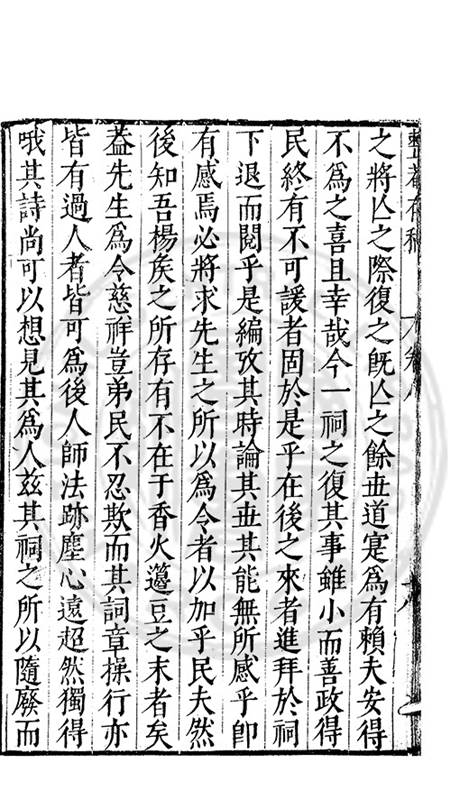 之將亾之際復之旣亾之餘世道寔爲有賴夫安得
不爲之喜且幸哉今一祠之復其事雖小而善政得
民終有不可諼者固於是乎在後之來者進拜於祠
下退而閱乎是編攷其時論其世其能無所感乎卽
有感焉必將求先生之所以爲令者以加乎民夫然
後知吾楊矦之所存有不在于香火籩豆之末者矣
葢先生爲令慈祥豈弟民不忍欺而其詞章操行亦
皆有過人者皆可爲後人師法跡塵心遠超然獨得
哦其詩尚可以想見其爲人茲其祠之所以隨廢而